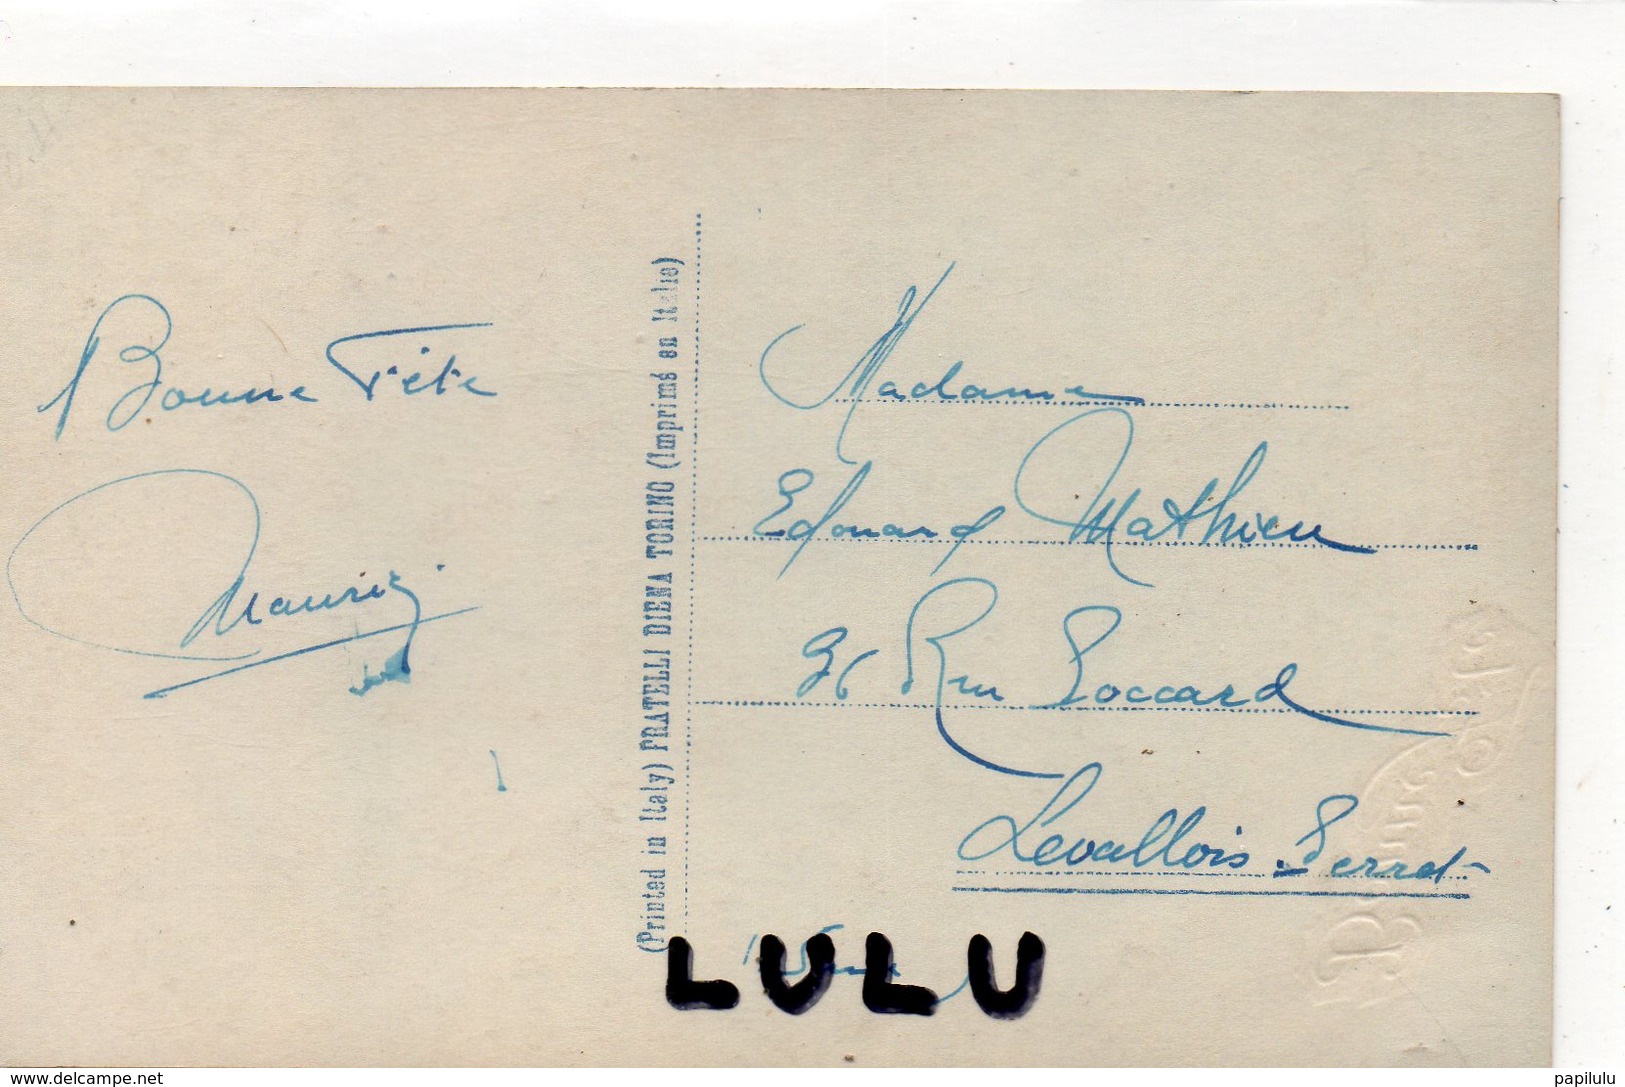 Bonne Fête
Maurice
(Printed in Italy) FRATELLI DIENA TORINO (Imprimé en Italie)
Madame
Edouard Mathieu
36 Rue Soccard
Levallois-Perret
(Seine)
Bonne Fête
LULU
www.delcampe.net
papilulu